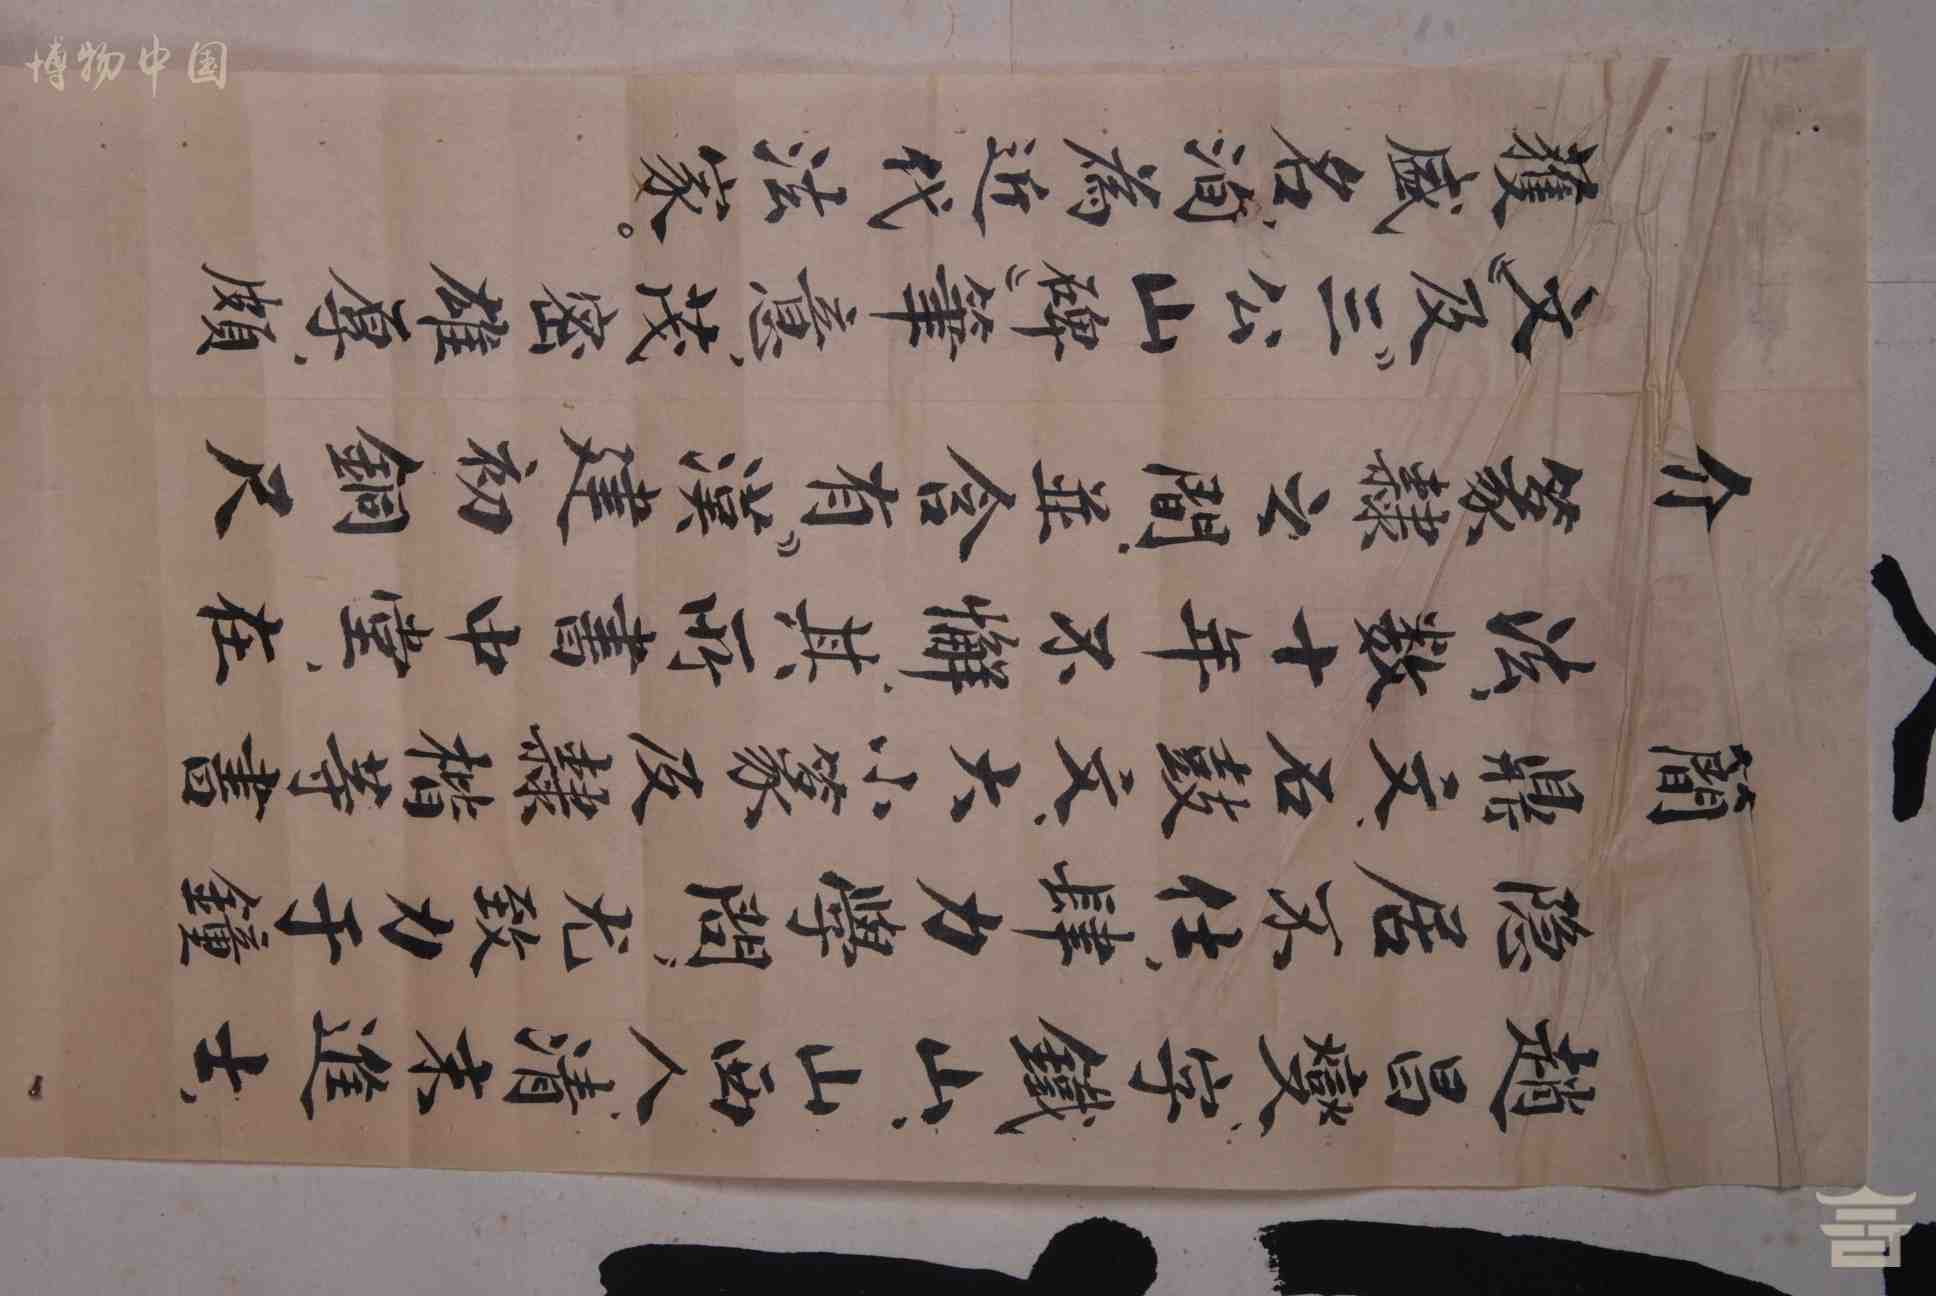 博物中国
簡介
趙昌燮、字鐵山、山西人、清末進士、
隱居不仕、肆力學問、尤致力于鐘
鼎文、石鼓文、大小篆及隸楷等書
法、數十年不懈、其所書中堂、在
篆隸之間、並含有“漢建初銅尺
文”及“三公山碑”筆意、茂密雄厚、頗
獲盛名、洵為近代法家。